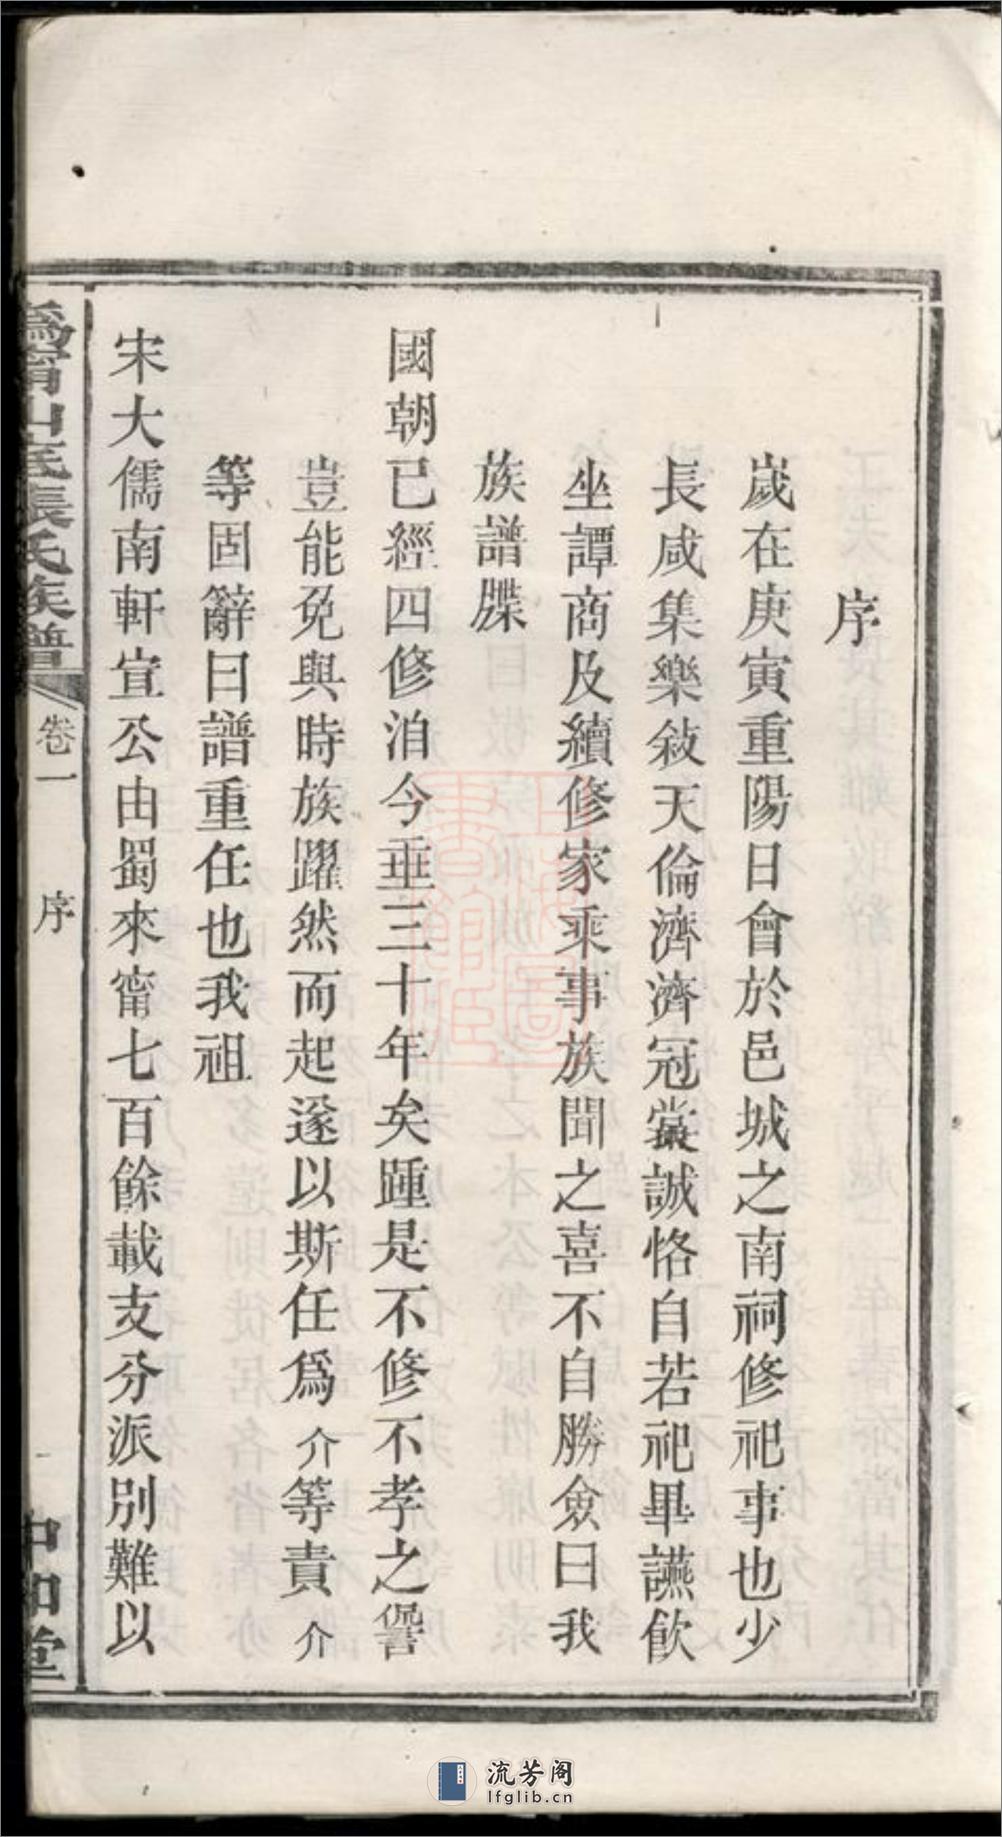 序
歲在庚寅重陽日會於邑城之南祠修祀事也少
長咸集樂敍天倫濟濟冠裳誠恪自若祀畢讌飲
坐譚商及續修家乘事族聞之喜不自勝僉曰我
族譜牒
國朝已經四修洎今垂三十年矣踵是不修不孝之諐
豈能免與時族躍然而起遂以斯任爲介等責介
等固辭曰譜重任也我祖
宋大儒南軒宣公由蜀來甯七百餘載支分派別難以
潙甯山底張氏族譜
卷一
序
中和堂
上海圖書館藏
流芳阁
lfglib.cn